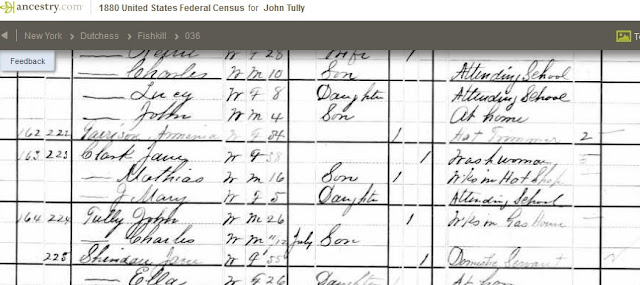 ancestry.com 1880 United States Federal Census for John Tully
New York > Dutchess > Fishkill > 036
Feedback
W F 28 Wife
— Charles W M 10 Son Attending School
— Lucy W F 8 Daughter Attending School
— John W M 4 Son At home
162 222 Garrison Armenia W F 1 Hat Trimmer 2
163 223 Clark Jane W F 38 1 Washwoman
— Mathias W M 16 Son 1 Wks in Hat Shop
— J Mary W F 5 Daughter Attending School
164 224 Tully John W M 26 1 Wks in Gas House
— Charles W M July Son
225 Sheridan Jane W F 55 1 Domestic Servant
— Ella W F 26 Daughter At home